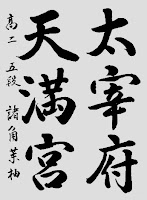 太宰府
天満宮
高二 五段 諸角葉柚